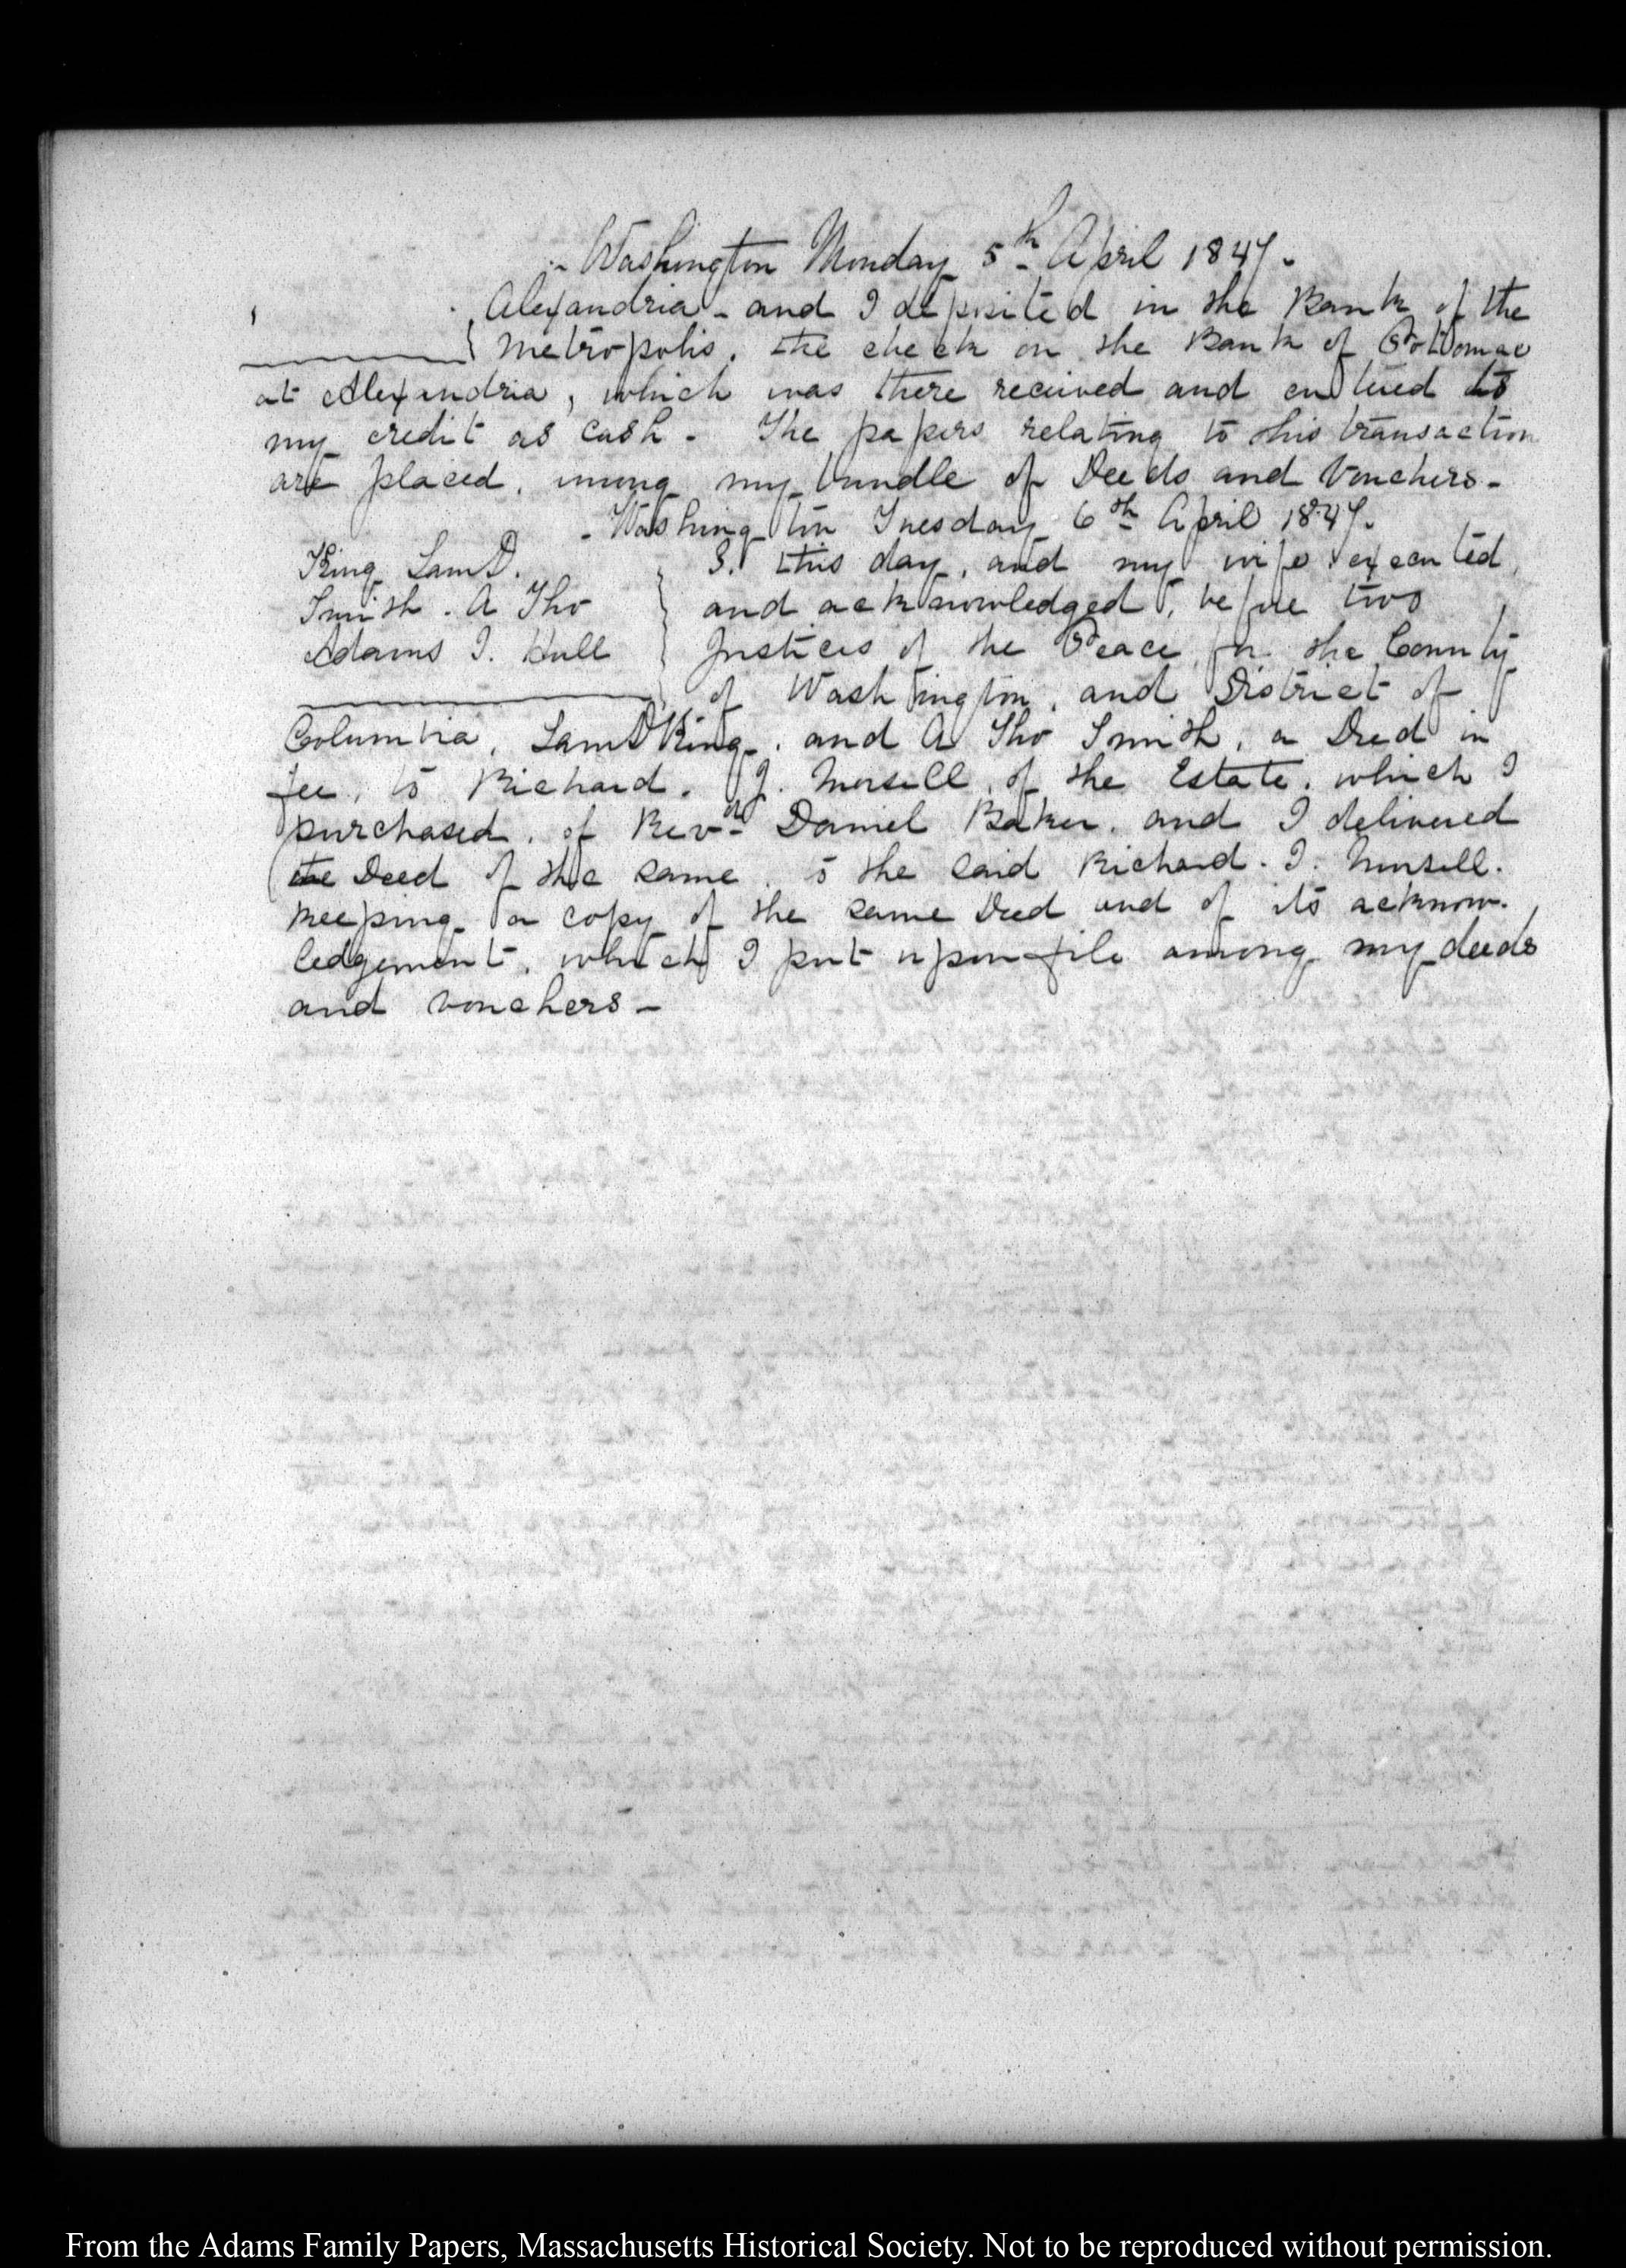 - Washington Monday 5th April 1847.
Alexandria - and I deposited in the Bank of the
Metropolis, the check on the Bank of Pottomac
at Alexandria, which was there received and entered to
my credit as cash - The papers relating to this transaction
are placed, among my bundle of Deeds and Vouchers -
- Washington Tuesday 6th April 1847.
King Saml D.
Smith . A Tho
Adams I. Hull
3. this day, and my wife executed,
and acknowledged, before two
Justices of the Peace, for the County
of Washington, and District of
Columbia, Saml D King, and A Tho Smith, a Deed in
fee, to Richard. J. Morsell, of the Estate, which I
purchased, of Revd Daniel Baker, and I delivered
the Deed of the same, to the said Richard. J. Morsell.
keeping a copy of the same Deed and of its acknow-
ledgement, which I put upon file among my deeds
and vouchers -
From the Adams Family Papers, Massachusetts Historical Society. Not to be reproduced without permission.